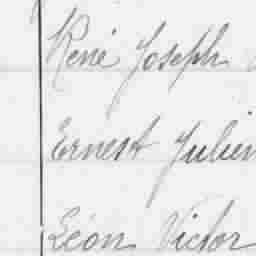 René Joseph
Ernest Julien
Léon Victor